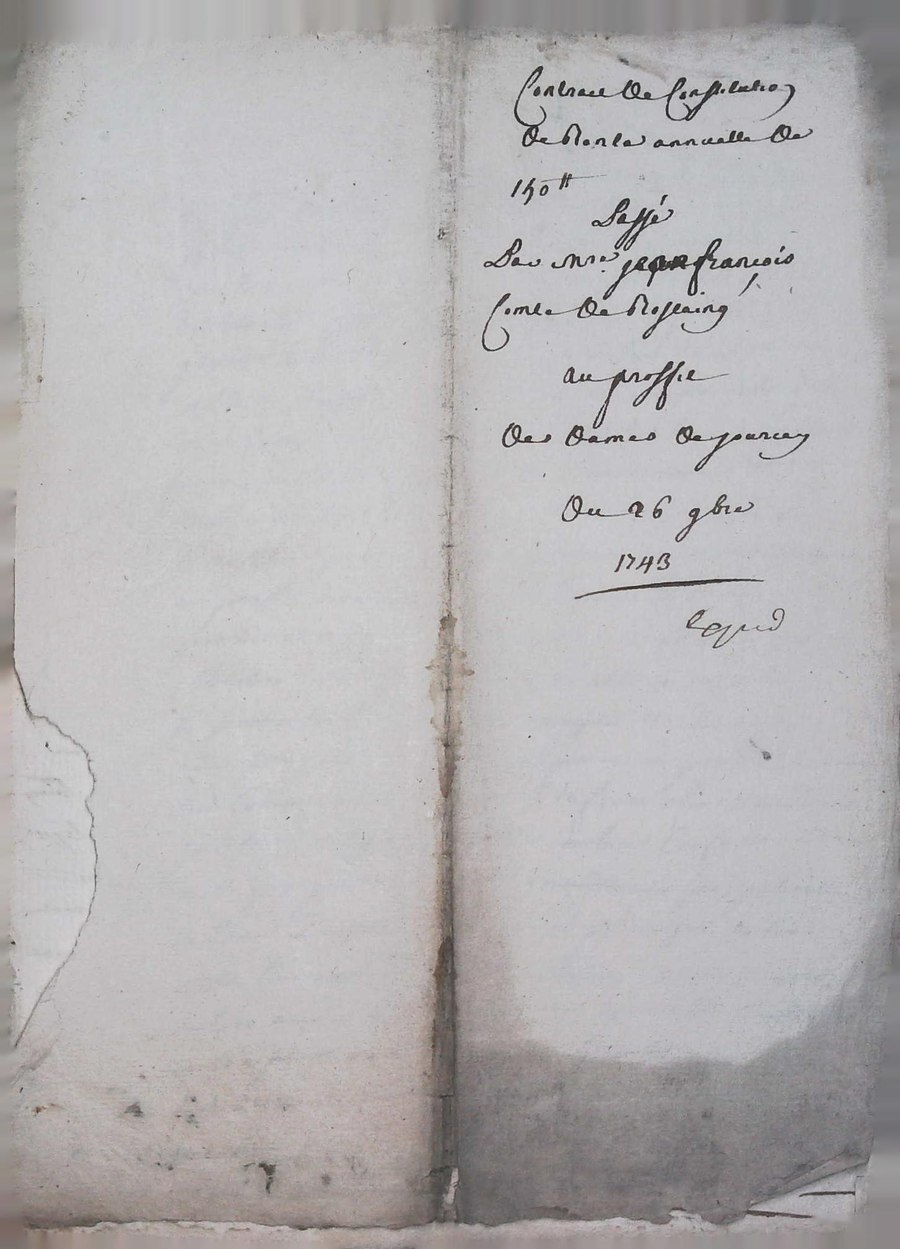 Contract de Constitution
de Rente annuelle de
150 ₶
Passé
Par Mre. jean françois
Comte de Rostaing
au proffit
des dames de jourcey
du 26 9bre
1743
Expéd